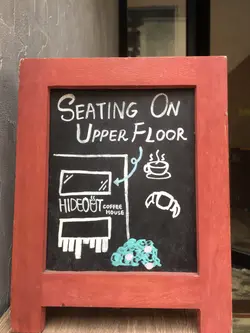 SEATING ON
UPPER FLOOR
HIDEOUT COFFEE
HOUSE